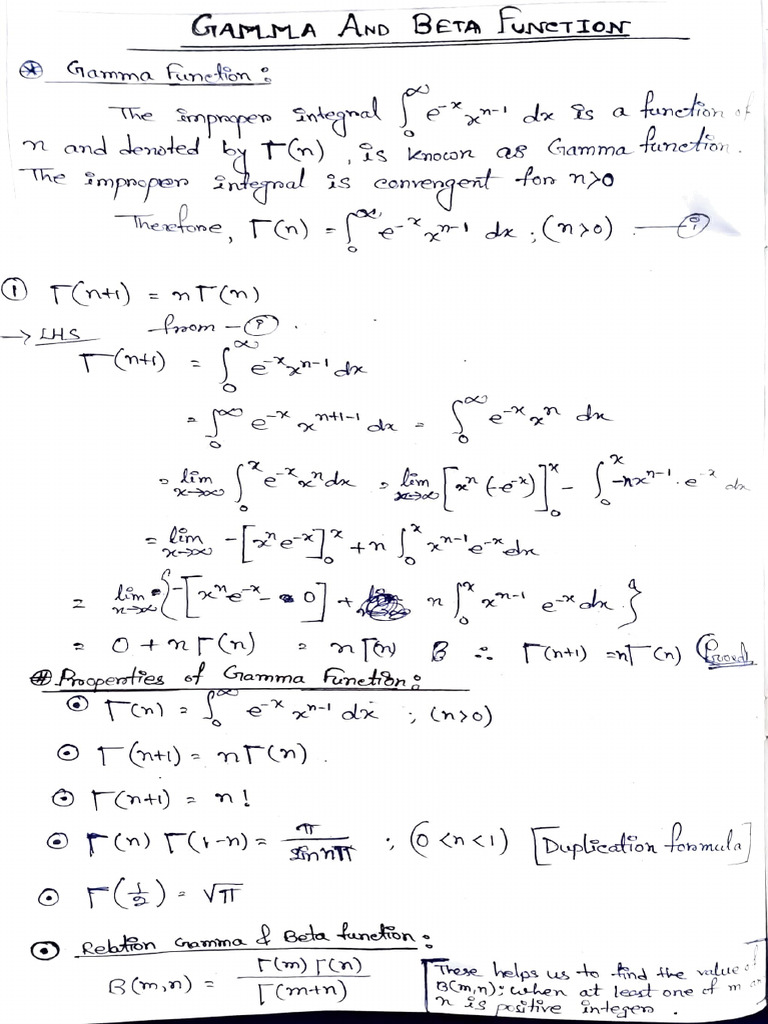 GAMMA AND BETA FUNCTION
⊛ Gamma Function :
The improper integral ∫₀^∞ e^{-x} x^{n-1} dx is a function of
n and denoted by Γ(n), is known as Gamma function.
The improper integral is convergent for n>0
Therefore, Γ(n) = ∫₀^∞ e^{-x} x^{n-1} dx ; (n>0) —(i)
① Γ(n+1) = nΓ(n)
→ LHS from - (i).
Γ(n+1) = ∫₀^∞ e^{-x} x^{n-1} dx
= ∫₀^∞ e^{-x} x^{n+1-1} dx = ∫₀^∞ e^{-x} x^n dx
= lim_{x→∞} ∫₀^x e^{-x} x^n dx = lim_{x→∞} [x^n (-e^{-x})]₀^x - ∫₀^x -nx^{n-1} . e^{-x} dx
= lim_{x→∞} -[x^n e^{-x}]₀^x + n ∫₀^x x^{n-1} e^{-x} dx
= lim_{n→∞} {-[x^n e^{-x} - 0] + n ∫₀^x x^{n-1} e^{-x} dx}
= 0 + nΓ(n) = nΓ(n) ∴ Γ(n+1) = nΓ(n) (Proved
# Properties of Gamma Function :
⊙ Γ(n) = ∫₀^∞ e^{-x} x^{n-1} dx ; (n>0)
⊙ Γ(n+1) = nΓ(n).
⊙ Γ(n+1) = n!
⊙ Γ(n) Γ(1-n) = π / sin nπ ; (0<n<1) [Duplication formula]
⊙ Γ(1/2) = √π
⊙ Relation Gamma & Beta function :
B(m,n) = Γ(m) Γ(n) / Γ(m+n)
[These helps us to find the value of
B(m,n); when at least one of m or
n is positive integer.